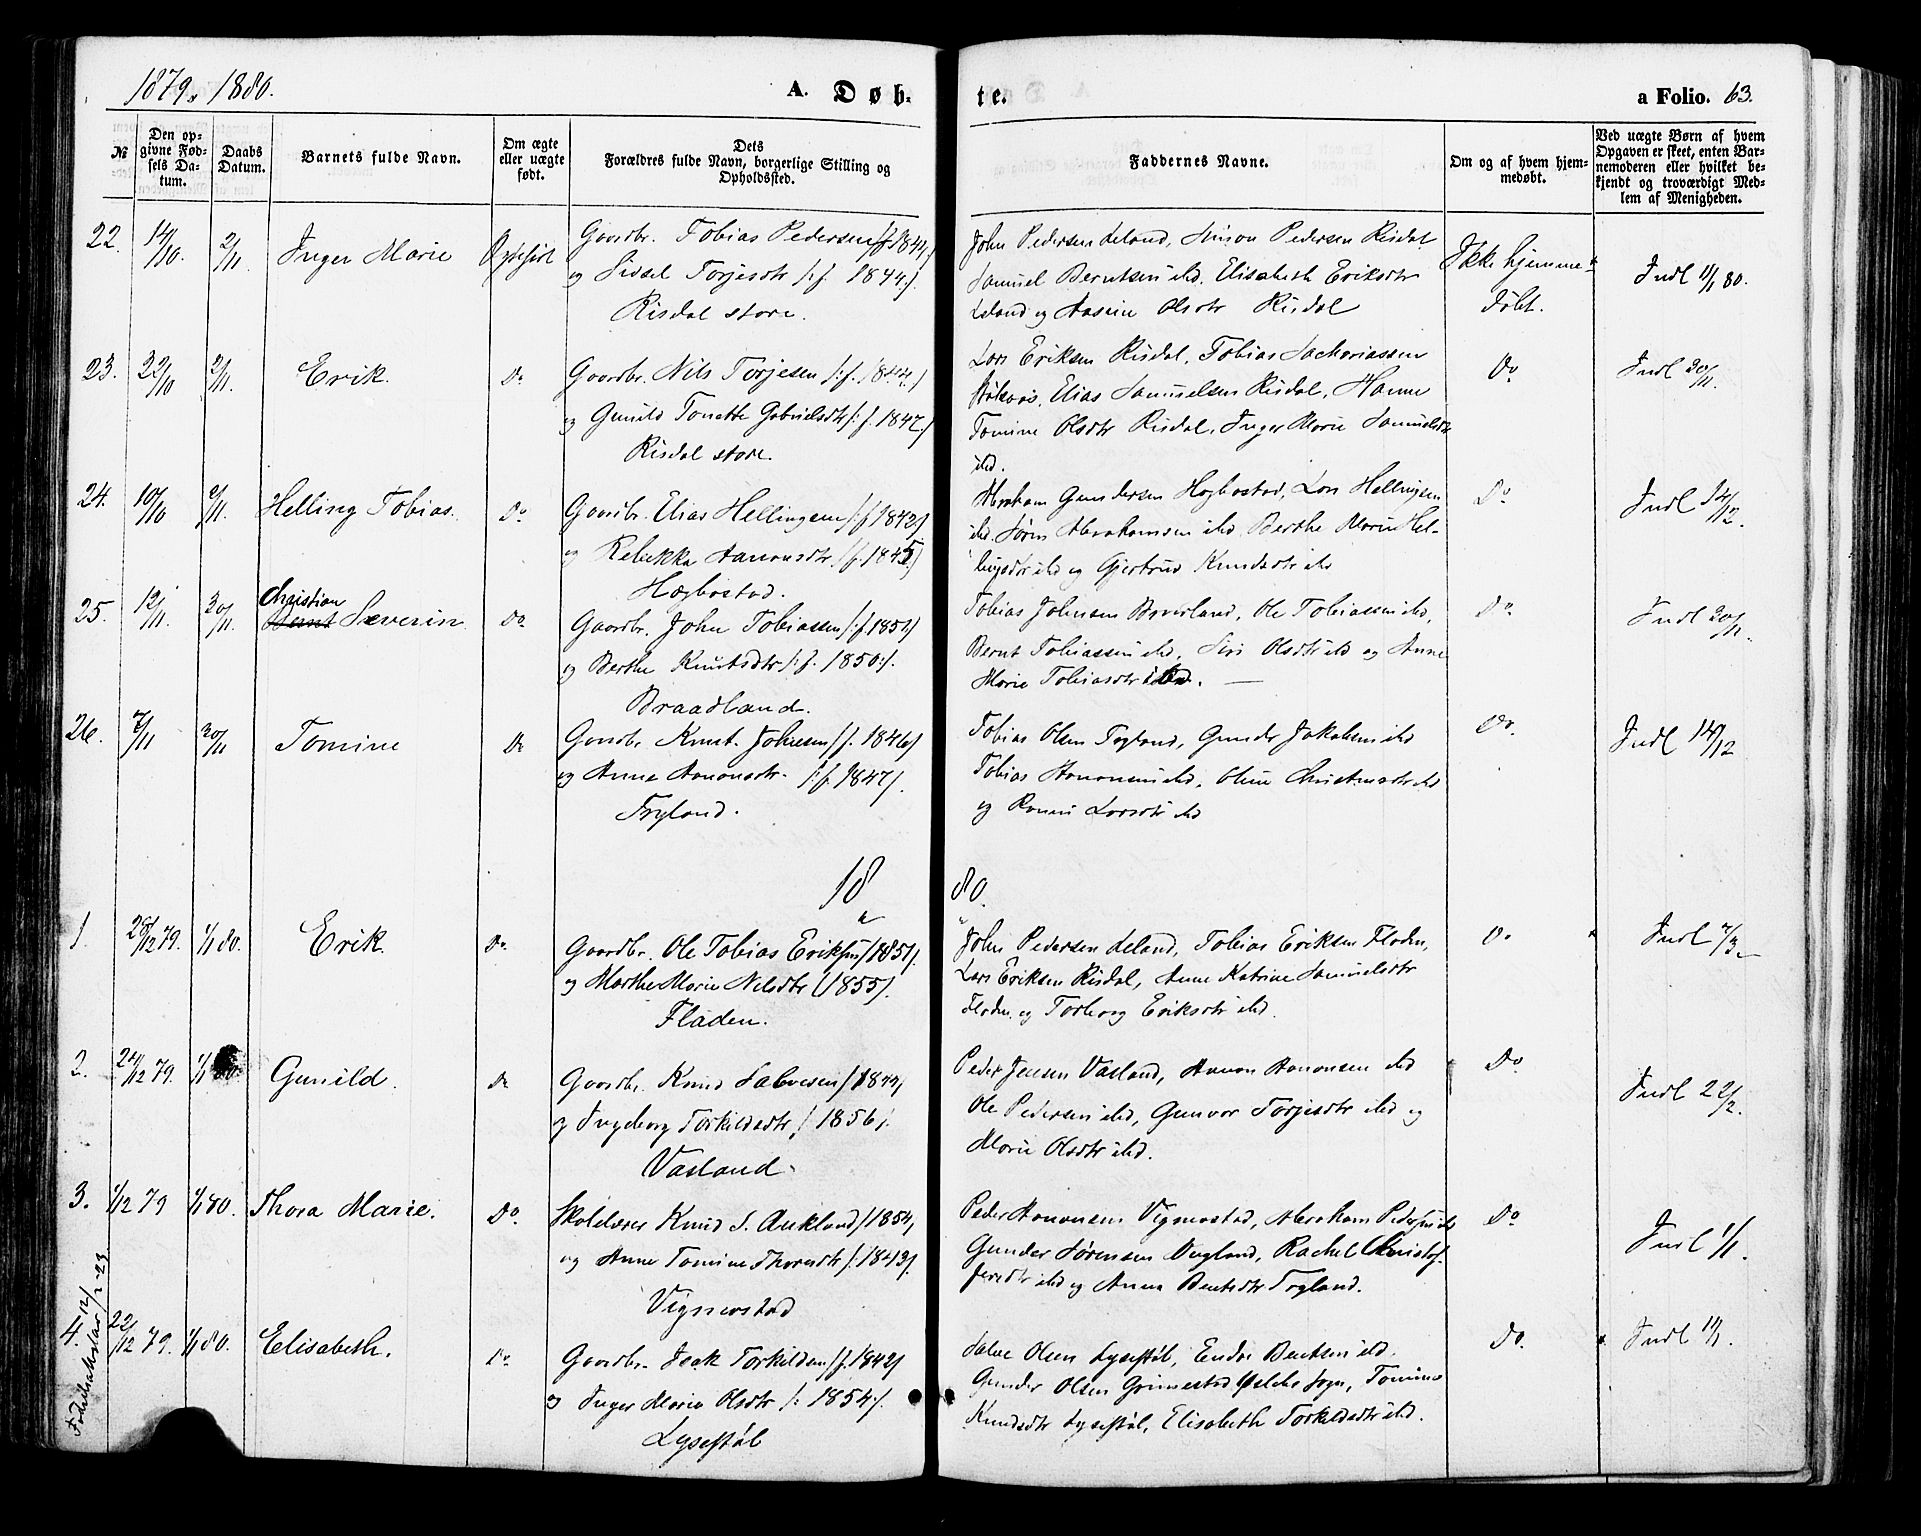 1879. 1880.
A. Døb-
te.
a Folio. 63.
№
Den op-
givne Fød-
sels Da-
tum.
Daabs
Datum.
Barnets fulde Navn.
Om ægte
eller uægte
født.
Dets
Forældres fulde Navn, borgerlige Stilling og
Opholdssted.
Faddernes Navne.
Om og af hvem hjem-
medøbt.
Ved uægte Børn af hvem
Opgaven er skeet, enten Bar-
nemoderen eller hvilket be-
kjendt og troværdigt Med-
lem af Menigheden.
22. 14/10. 2/11. Inger Marie
Gaardbr. Tobias Pedersen /:f. 1844:/
og Sidsel Torjesdtr /:f. 1844:/
Risdal store.
John Pedersen Leland, Pedersen Risdal
Samuel Berntsen ibd. Elisabeth Eriksdtr
Leland og Olsdtr Risdal
Ikke hjemme-
døbt.
Indl 11/1 80.
23. 22/10 2/11. Erik. Do
Gaardbr. Nils Torjesen /:f. 1844:/
og Gunild Tonette Gabrielsdtr /:f. 1847:/
Risdal store.
Lars Eriksen Risdal, Tobias Sachariassen
Elias Samuelsen Risdal, Hanne
Tomine Olsdtr Risdal, Inger Marie Samuelsdtr
ibd.
Do
Indl 30/11.
24. 10/10 2/11. Helling Tobias. Do
Gaardbr. Elias Hellingsen /:f 1842:/
og Rebekka Aanonsdtr /:f. 1845:/
Hægbostad.
Abraham Gundersen Hægbostad, Lars Hellingsen
ibd. Søren Abrahamsen ibd Berthe Marie Hel-
lingsdtr ibd og Gjertrud Knudsdtr ibd
Do
Indl 14/12.
25. 12/11. 30/11. Christian
Bernt Severin. Do
Gaardbr. John Tobiassen /:f. 1851:/
og Berthe Knutsdtr /:f. 1850:/.
Braadland.
Tobias Johnsen Ole Tobiassen ibd,
Bernt Tobiassen ibd, Siri Olsdtr ibd og Anne
Marie Tobiasdtr ibd. —
Do
Indl 30/11.
26. 7/11 30/11 Tomine Do
Gaardbr Knut Johnsen /:f. 1846:/
og Anne Aanonsdtr. /:f. 1847:/.
Tryland.
Tobias Olsen Tryland, Gunder Jakobsen ibd
Tobias Aanonsen ibd, ibd
og Larsdtr ibd
Do.
Indl 14/12
18 80.
1. 28/12 79. 1/1 80. Erik. Do
Gaardbr. Ole Tobias Eriksen /1851/.
og Marthe Marie Nilsdtr /1855/.
Fladen.
John Pedersen Leland, Tobias Eriksen Fladen,
Lars Eriksen Risdal, Anne Katrine Samuelsdtr
Fladen og Torborg Eriksdtr ibd.
Do
Indl 7/3.
2. 24/12 79. 1/1 80. Gunild. Do
Gaardbr. Knud Salvesen /1844/
og Ingeborg Torkildsdtr /:1856/.
Vasland.
Peder Jensen Vasland, Aanon Aanonsen ibd
Ole Pedersen ibd, Gunvor Torjesdtr ibd og
Marie Olsdtr ibd.
Do
Indl 22/2.
3. 1/12 79 1/1 80. Thora Marie. Do.
Skolelærer Knud S. Aukland /1854/
og Anne Tomine Thorsdtr /:1843/.
Vigmostad
Peder Aanonsen Vigmostad, Abraham Pedersen ibd
Gunder Sørensen Rachel Christof-
fersdtr ibd og Anna Bentsdtr Trygland.
Do
Indl 1/1.
4. 22/12 79. 1/1 80. Elisabeth. Do
Gaardbr. Isak Torkildsen /:f. 1842/
og Inger Marie Olsdtr /: 1854:/.
Lysestøl
Salve Olsen Lysestøl, Endre Bentsen ibd.
Gunder Olsen Grimestad Øslebø Sogn, Tomine
Knudsdtr Lysestøl, Elisabeth Torkildsdtr ibd.
Do.
Indl 11/1.